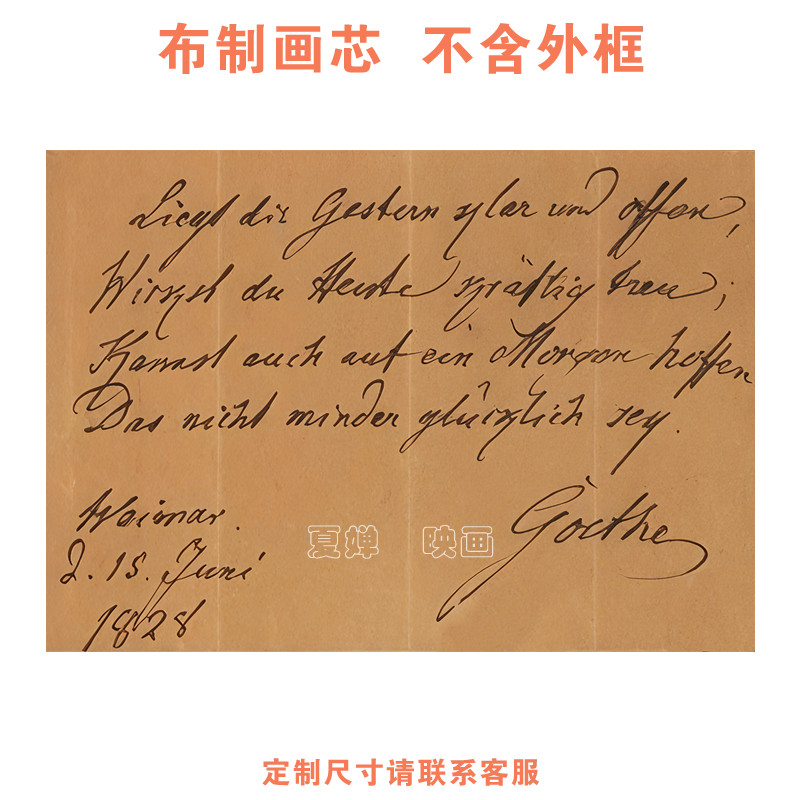 布制画芯 不含外框
Liegt dir Gestern klar und offen,
Wirkst du Heute kräftig treu;
Kannst auch auf ein Morgen hoffen
Das nicht minder glücklich sey.
Weimar.
d. 15. Juni
1828
Goethe
夏婵 映画
定制尺寸请联系客服